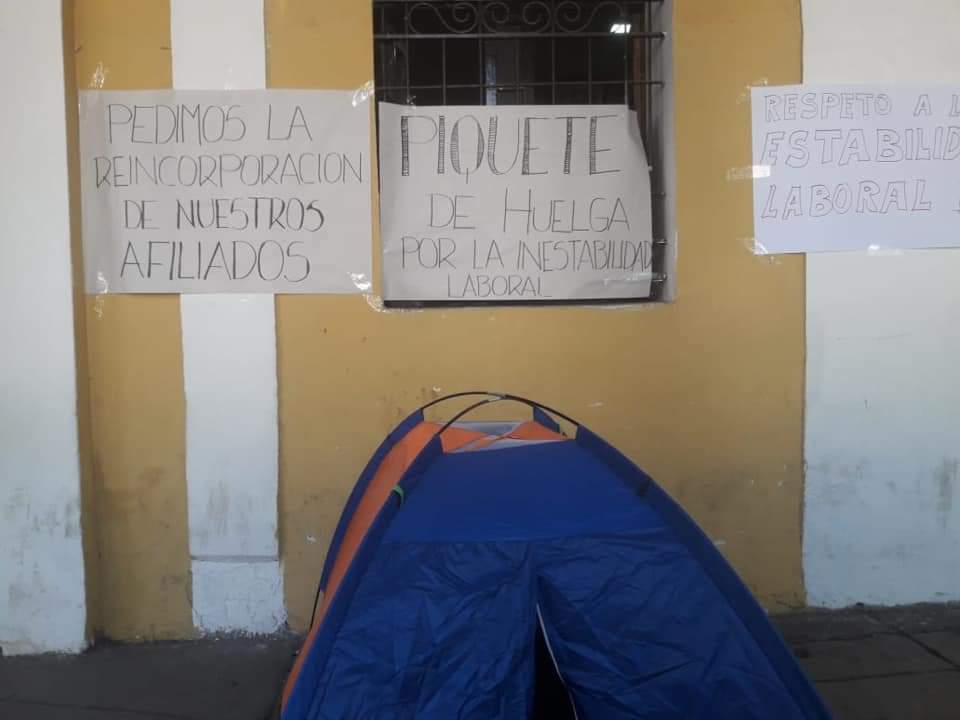 PEDIMOS LA
REINCORPORACION
DE NUESTROS
AFILIADOS
PIQUETE
DE HUELGA
POR LA INESTABILIDAD
LABORAL
RESPETO A
LABORAL